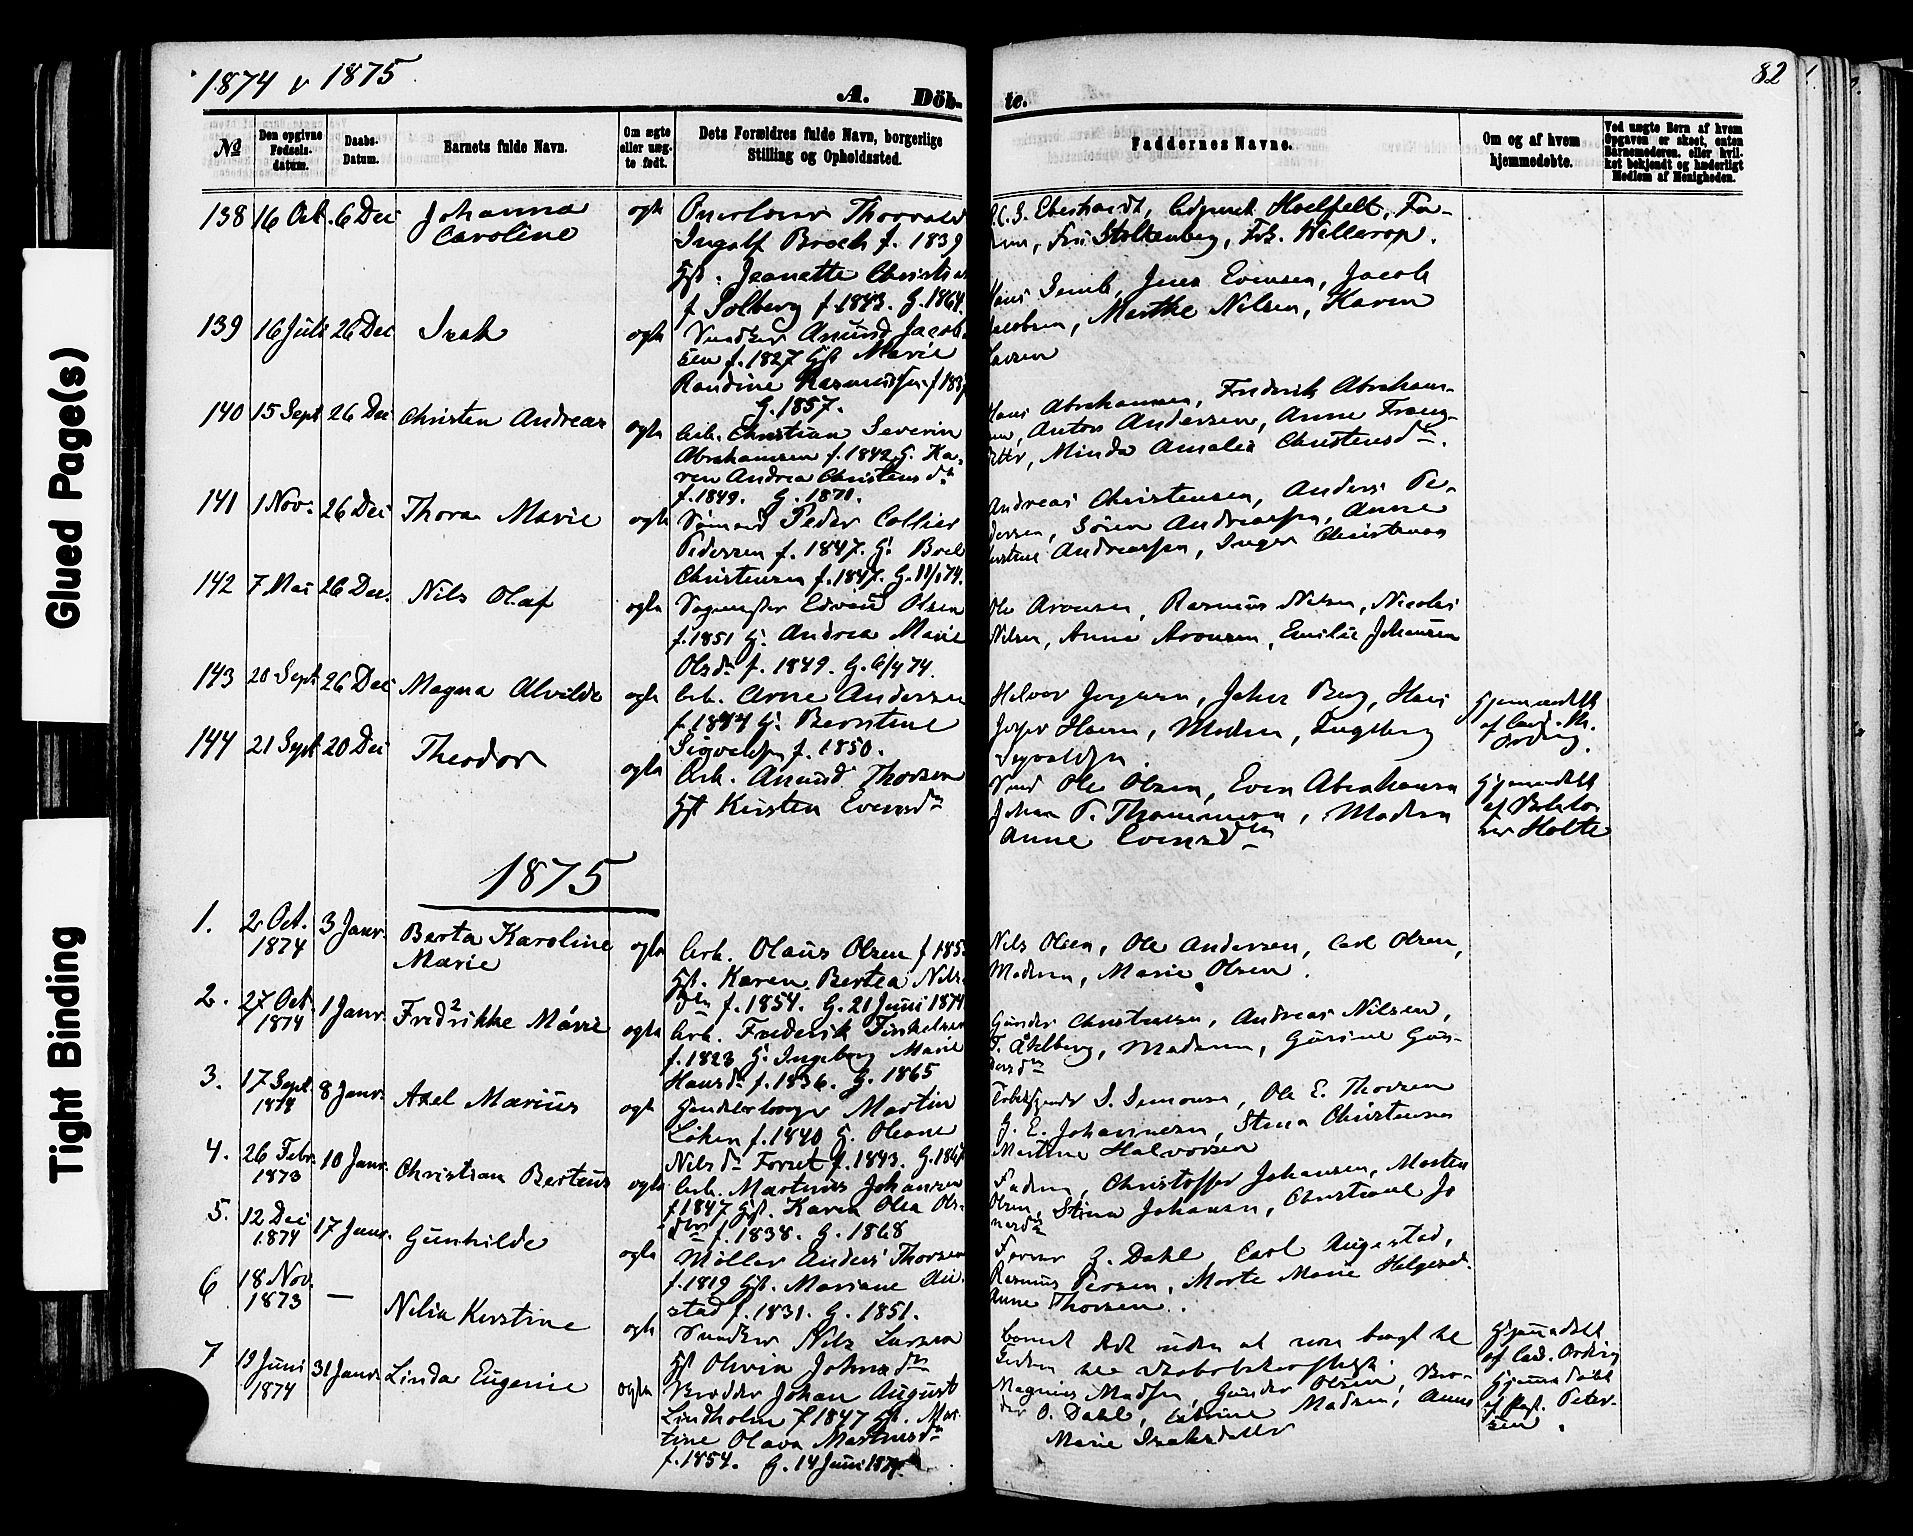 1874 & 1875
82
A. Döb- te.
№
Den opgivne Fødsels- datum.
Daabs- Datum.
Barnets fulde Navn.
Om ægte eller uæg- te født.
Dets Forældres fulde Navn, borgerlige Stilling og Opholdssted.
Faddernes Navne.
Om og af hvem hjemmedøbte.
Ved uægte Børn af hvem Opgaven er skeet, enten Barnemoderen, eller hvil- ket bekjendt og hæderligt Medlem af Menigheden.
138 16 Oct. 6 Dec Johanna Caroline ogte
Thorvald
Ingolf Broch f. 1839
Gft. Jeanette Christi
f Solberg f. 1843. G. 1864.
Eberhardt, Hoelfelt, Fa-
Fru Stoltenberg, Frk. Willerop.
139 16 Juli 26 Dec Isak ogte
Anund Jacob-
sen f. 1827 Gft Marie
Randine Rasmusdsen f 183
G. 1857.
Jens Evensen, Jacob
Jacobsen, Marthe Nilsen, Karen
Larsen
140 15 Sept 26 Dec Christen Andreas ogte
Arb. Christian Severin
Abrahamsen f. 1842 G. Ka-
ren Andrea Christensdtr
f. 1849. G. 1871.
Hans Abrahamsen, Frederik Abraham-
sen, Anton Andersen, Anne Franz-
dttr, Minda Amalia Christensdtr.
141 1 Nov. 26 Dec Thora Marie ogte
Sømand Peder Collier
Pedersen f. 1847. G. Boel
Christensen f. 1847. G. 11/1 74.
Andreas Christensen, Anders Pe-
dersen, Søren Andreassen, Anne
Kirstine Andreassen, Inger Christensen
142 7 Mai 26 Dec. Nils Olaf ogte
Sagmester Edvard Olsen
f. 1851 G. Andrea Marie
Olsdtr f. 1849. G. 6/4 74.
Ole Aronsen, Rasmus Nilsen, Nicolai
Nilsen, Anne Aronsen, Emilie Johansen
143 20 Sept. 26 Dec Magna Alvilde ogte
Arb. Arne Andersen
f. 1844 G. Berntine
Sigvaldsen f. 1850.
Halvor Jørgensen, Johan Berg, Hans
Hansen, Moderen, Ingeborg
Sigvaldsen
Hjemmedøbt
af Card. Th.
Ording.
144 21 Sept 20 Dec Theodor ogte
Arb. Anund Thorsen
Gft Kirsten Evensdtr
Ole Olsen, Even Abrahamsen
Johan P. Thommesen, Moderen
Anne Evensdtr
Hjemmedøbt
af
Holte
1875
1. 2 Oct. 1874 3 Janr. Berta Karoline Marie ogte
Arb. Olaus Olsen f 185
Gft. Karen Bertea Nils-
dtr f. 1854. G. 21 Juni 1874
Nils Olsen, Ole Andersen, Carl Olsen,
Moderen, Marie Olsen.
2. 27 Oct. 1874 1 Janr. Fredrikke Marie ogte
Arb. Frederik Finkelsen
f. 1823 G. Ingeborg Marie
Hansdtr f. 1836. G. 1865
Gunder Christensen, Andreas Nilsen,
T. Åhlberg, Moderen, Gurine Gun-
dersdtr
3. 17 Sept. 1874 8 Janr. Axel Marius ogte
Martin
Løken f. 1840 G. Oleane
Nilsdtr Forset f. 1843. G. 1867
S. Simonsen, Ole E. Thorsen
G. E. Johannesen, Stina Christensen
Martine Halvorsen
4. 26 Febr. 1873 10 Janr. Christian Berteus ogte
Arb. Martinus Johansen
f. 1847 Gft. Karen Olea Ols-
dtr f. 1838. G. 1868
Faderen, Christoffer Johansen, Morten
Olsen, Stina Johansen, Christiane Jo
5. 12 Dec 1874 17 Janr. Gunhilde ogte
Møller Anders Thorsen
f. 1819 Gft. Mariane Au-
stad f. 1831. G. 1851.
Z. Dahl, Carl Augestad,
Rasmus Persen, Marte Marie Helgesd.
Anne Thorsen.
6 18 Nov. 1873 — Nilia Kirstine ogte
Nils Larsen
Gft Olivia Johnsdtr
Barnet død uden at være bragt til
Kirken
Hjemmedøbt
af Card. Ording
7 19 Juni 1874 31 Janr. Linda Eugenie ogte
Johan August
Lindholm f 1847 Gft. Mar-
tine Olava Martinsdtr
f. 1854. G. 14 Juni 1874
Magnus Madsen, Gunder Olsen, Bro-
der O. Dahl, Madsen, Anne
Marie Isaksdatter
Hjemmedøbt
af Peter-
sen.
Glued Page(s)
Tight Binding